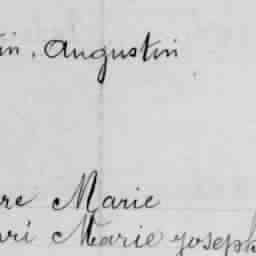 in, Augustin
re Marie
ri Marie Joseph